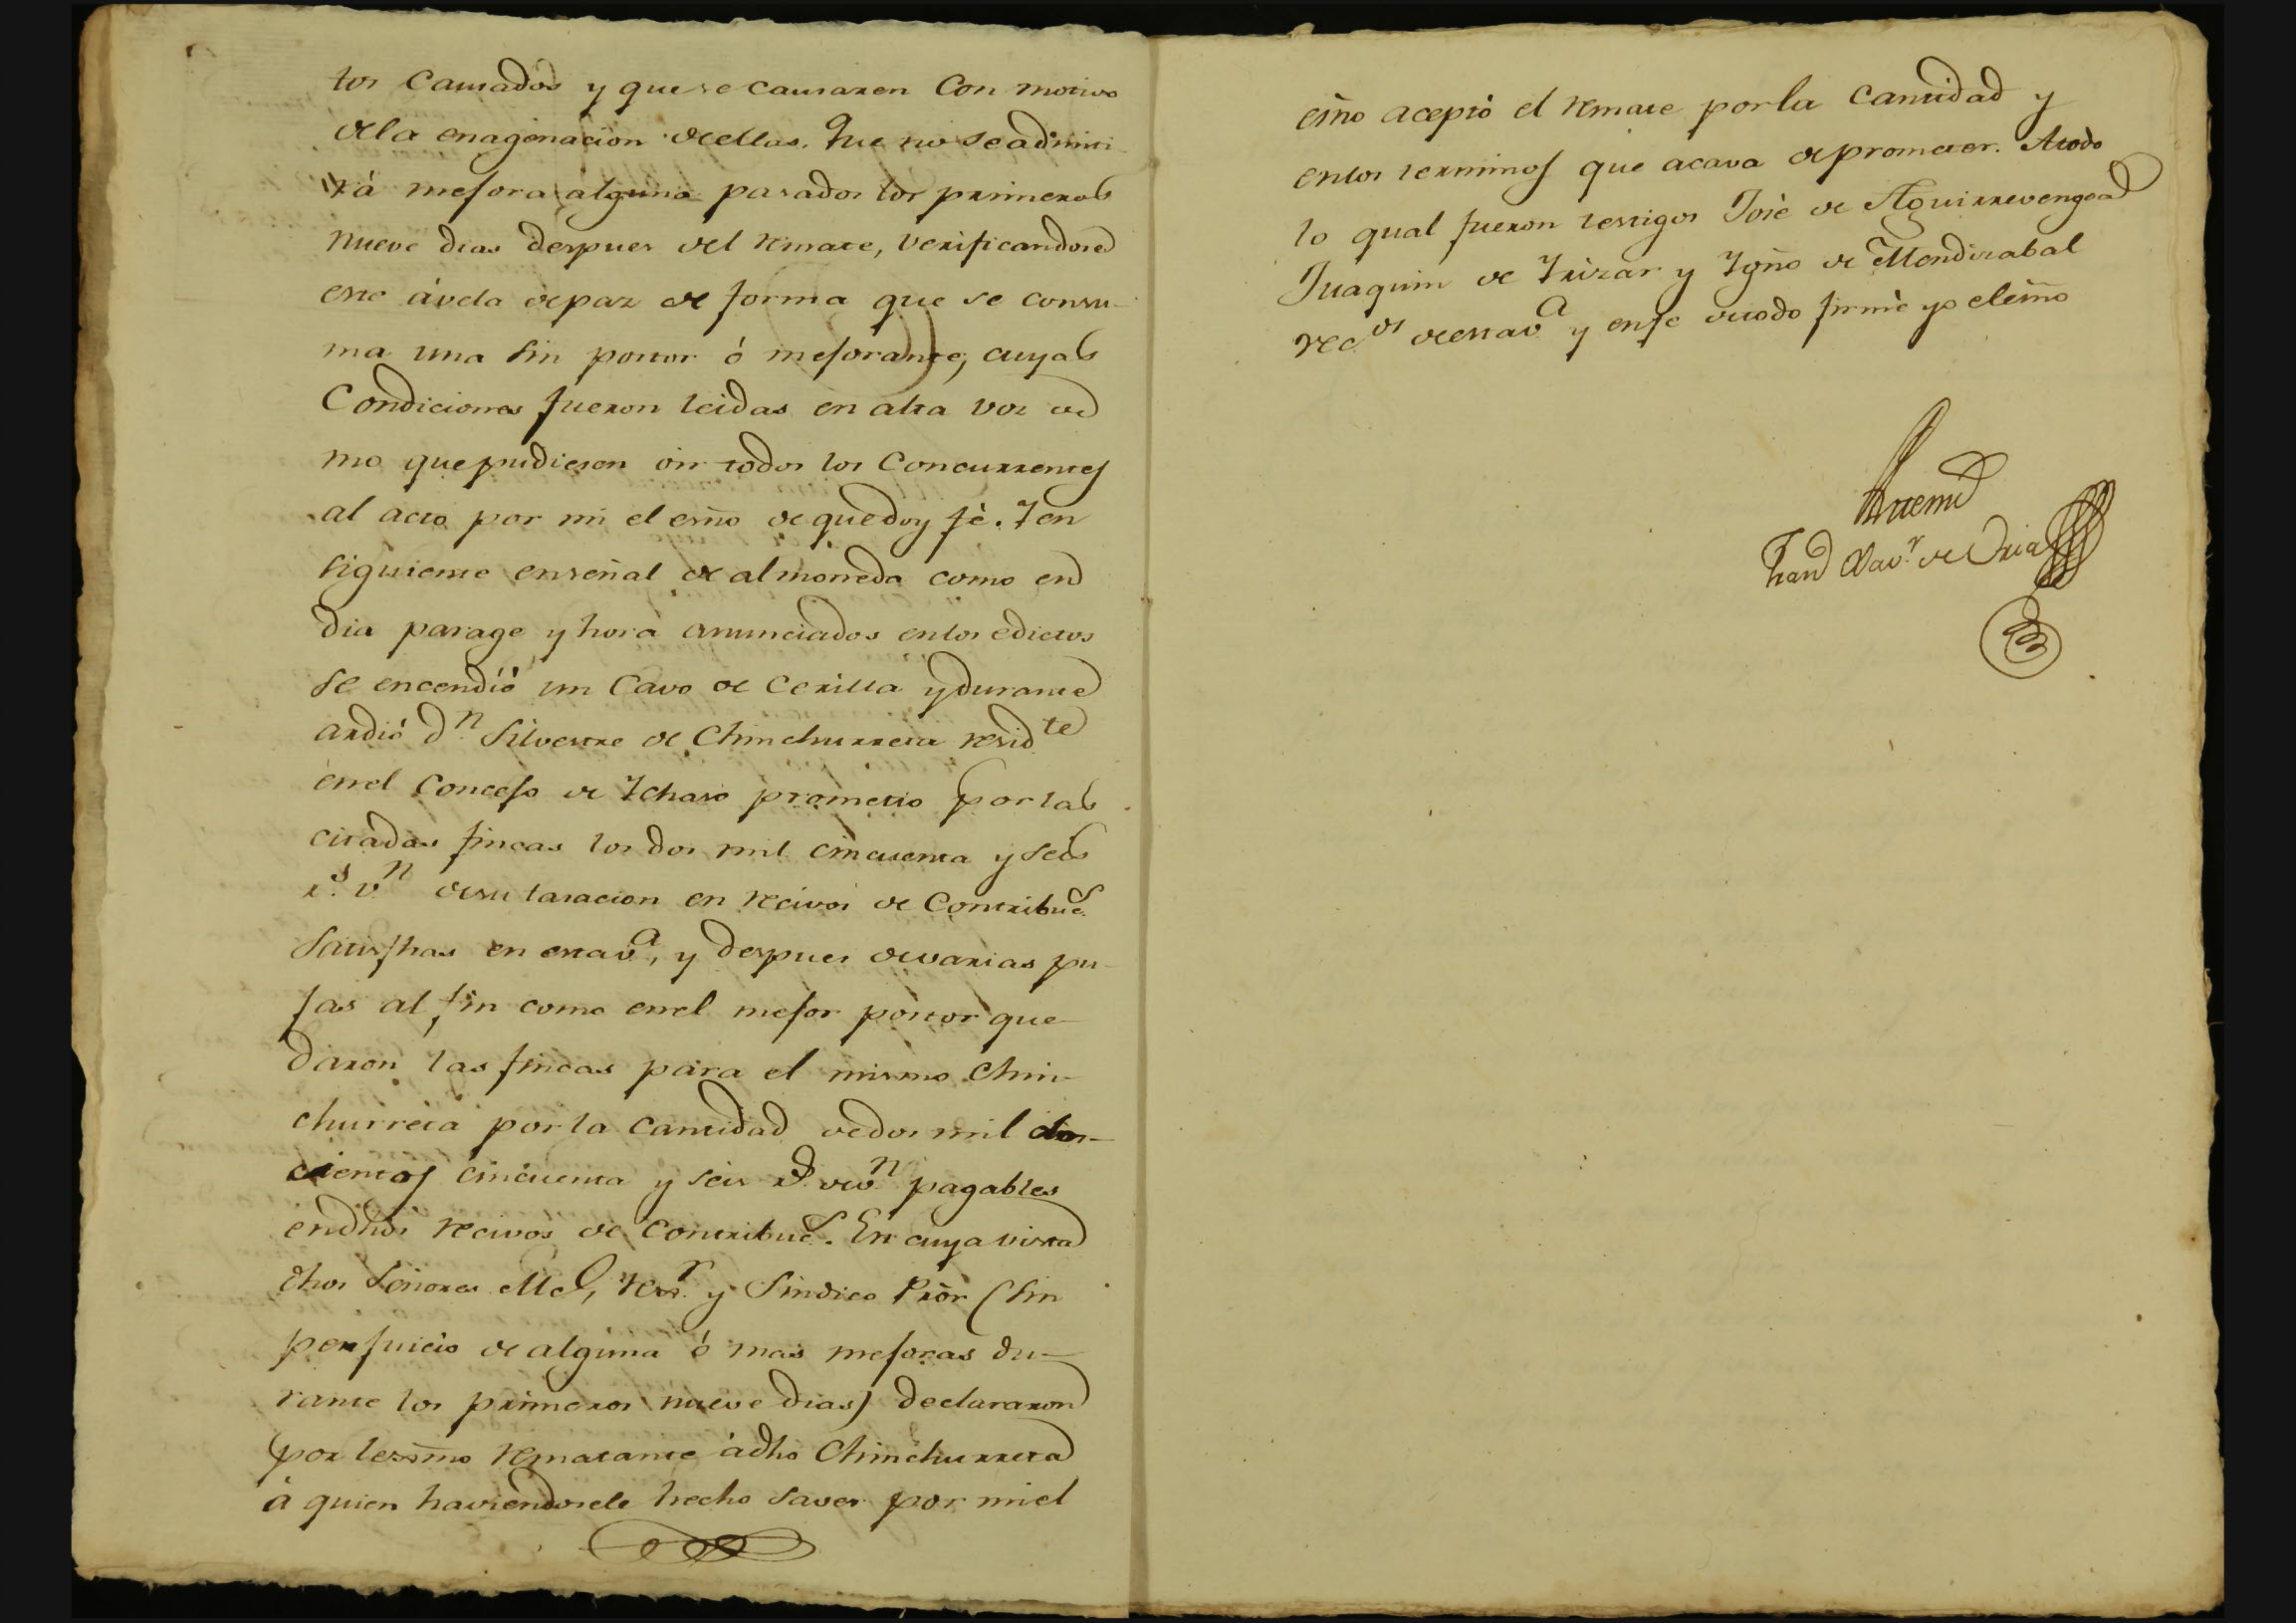 tos causados y que se causaren con motivo
de la enagenacion de ellas. Que no se admiti-
rá mejora alguna pasados los primeros
nueve dias despues del remate, verificandose
este ávela de paz de forma que se consu-
ma una sin postor ó mejorante, cuyas
Condiciones fueron leidas en alta voz de
mo que pudiesen oir todos los Concurrentes
al acto por mi el esño de que doy fé. Y en
siguiente en señal de almoneda como en
dia parage y hora anunciados en los edictos
se encendió un Cavo de Cerilla y durante
ardió Dn. Silvestre de Chinchurreta residte
en el Concejo de Ychaso prometio por las
citadas fincas los dos mil cincuenta y seis
rs. vn de su tasacion en recivos de Contribucs.
satisfhas en esta va, y despues de varias pu-
jas al fin como en el mejor postor que-
daron las fincas para el mismo Chin-
churreta por la cantidad de dos mil dos-
cientos cincuenta y seis rs. de vn. pagables
en dhos recivos de Contribucs. En cuya vista
dhos Señores Alce, Rexr. y Sindico Prór (sin
perjuicio de alguna ó mas mejoras du-
rante los primeros nueve dias) declararon
por lexmo rematante á dho Chinchurreta
á quien haviendosele hecho saver por mi el
esño aceptó el remate por la cantidad y
en los terminos que acava de prometer. A todo
lo qual fueron testigos José de Aguirrevengoa
Juaquin de Yrizar y Ygño de Mendizabal
vecos de esta va y en fe de todo firmé yo el esño
Ante mi
Frand Xavr. de Oria